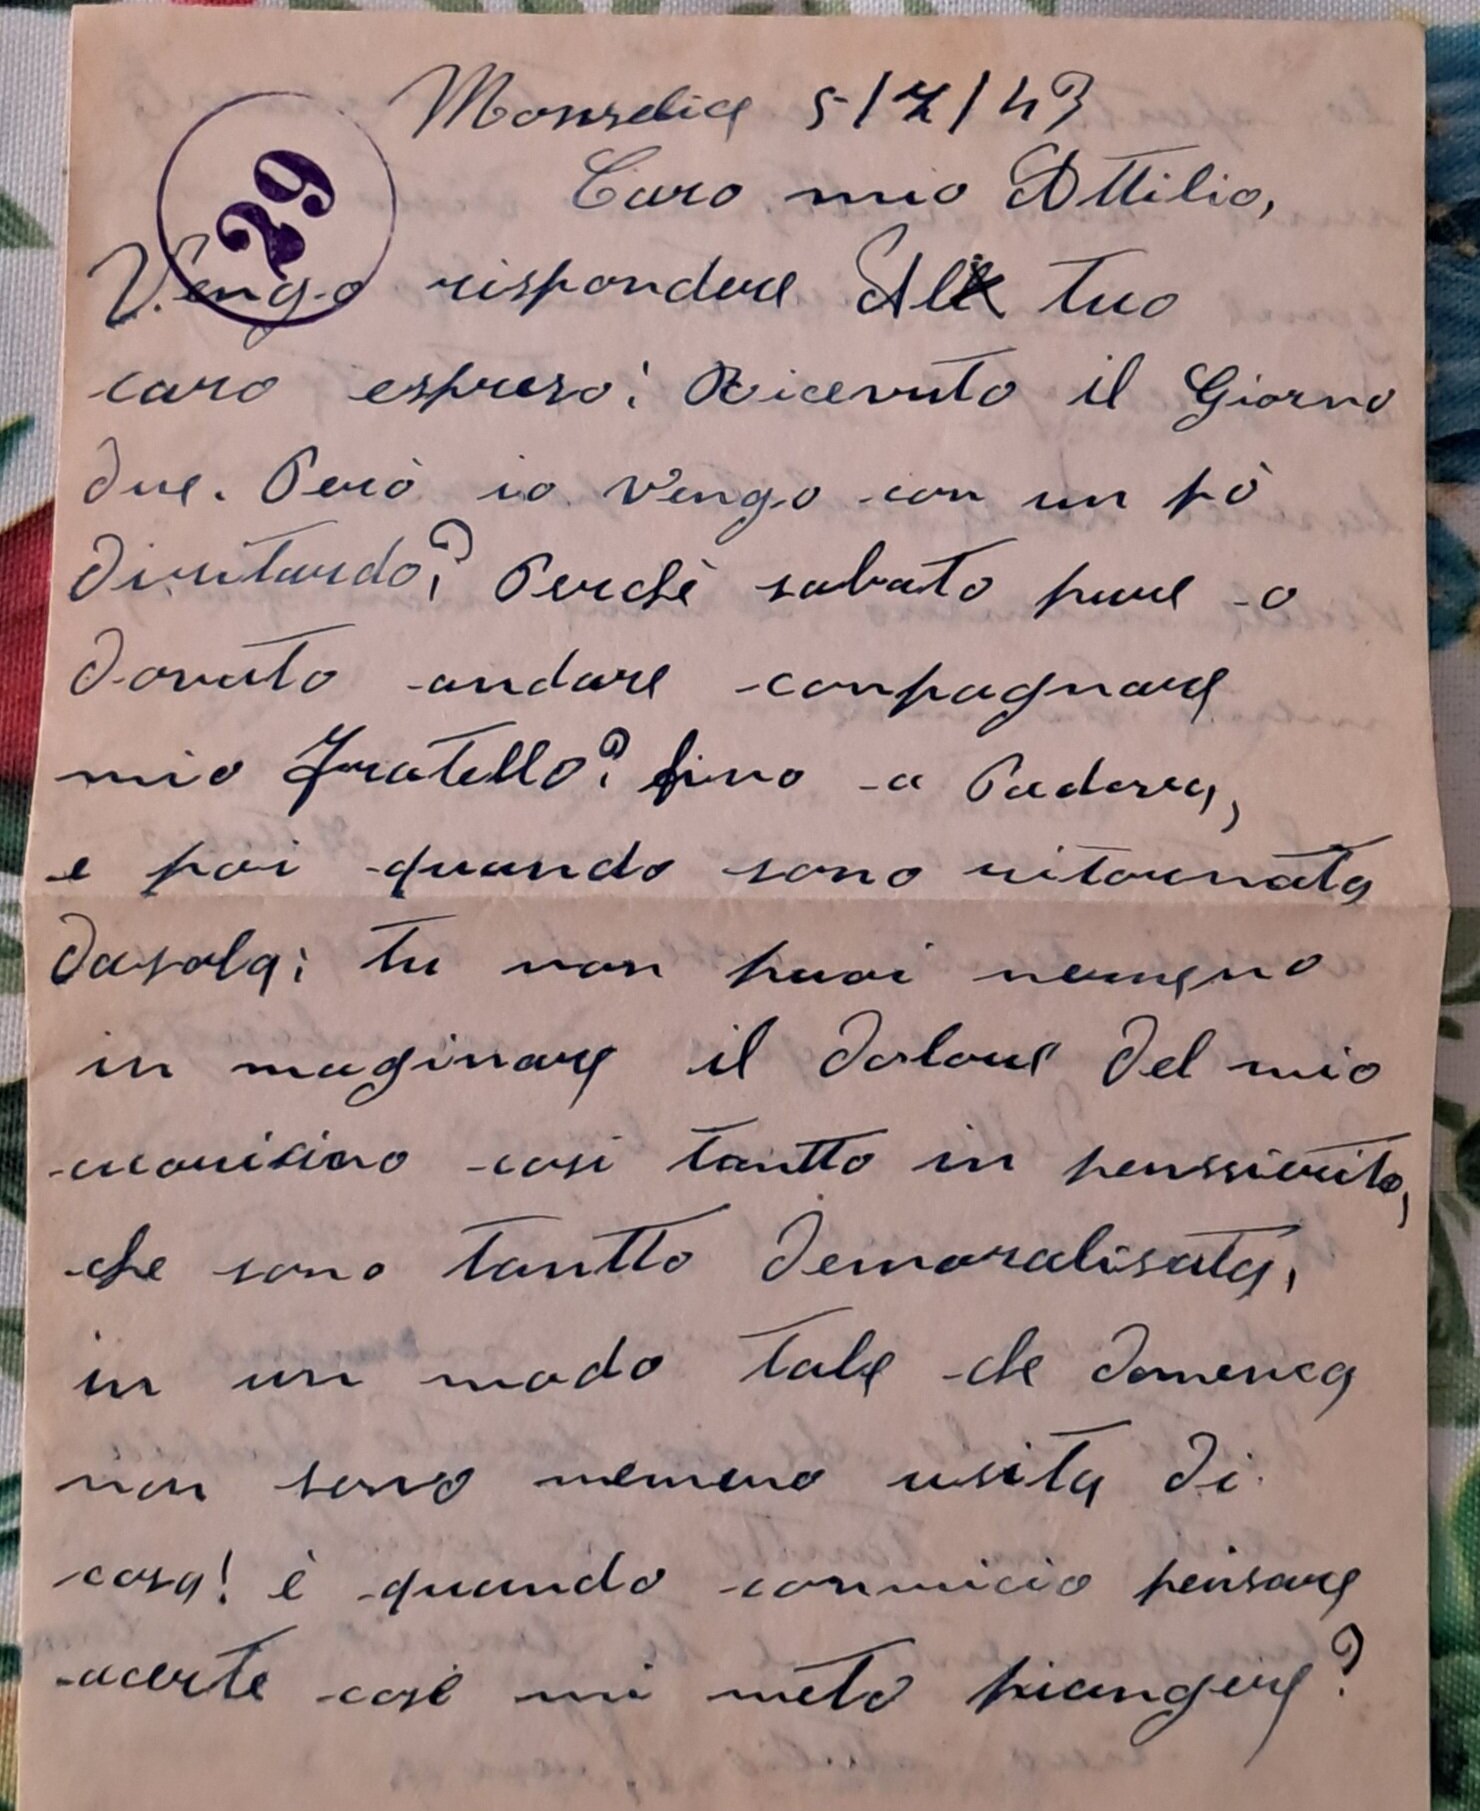 Monselice 5/7/43
29
Caro mio Attilio,
Vengo rispondere Al tuo
caro espreso; Ricevuto il Giorno
due. Però io vengo con un pò
diritardo? Perchè sabato pure o
dovuto andare conpagnare
mio Fratello? fino a Padova,
e poi quando sono ritornata
dasola; tu non puoi nemeno
in maginare il dolore del mio
cosi tantto in penssierita,
che sono tantto demoralisata,
in un modo tale che domenica
non sono nemeno usita di
casa! è quando comincio pensare
acerte cose mi meto piangere?